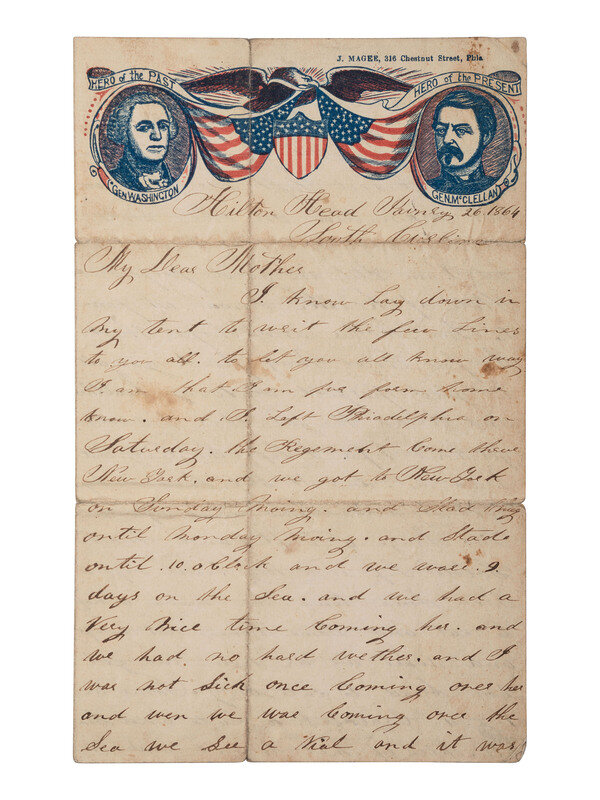 J. MAGEE, 316 Chestnut Street, Phla
HERO of the PAST
HERO of the PRESENT
GEN WASHINGTON
GEN. McCLELLAN
Hilton Head 26. 1864
South
My Dear Mother
I know Lay down in
my tent to writ the few Lines
to you all. to let you all know way
I am that I am form home
know. and I Left Philadelphia on
Saturday. the Regement Come
New York. and we got to New York
on Sunday Moing. and Stad
until Monday Moing. and Stade
until .10. oClock and we was .9.
days on the Sea. and we had a
Very Nice time Coming her. and
we had no hard wether. and I
was not Sick once Coming over her
and wen we was Coming over the
Sea we See a and it was